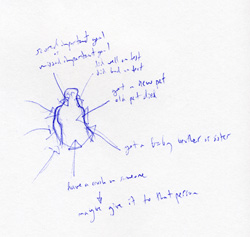 scored important goal
missed important goal
did well on test
did bad on test
got a new pet
old pet died
got a baby brother or sister
have a crush on someone
maybe give it to that person